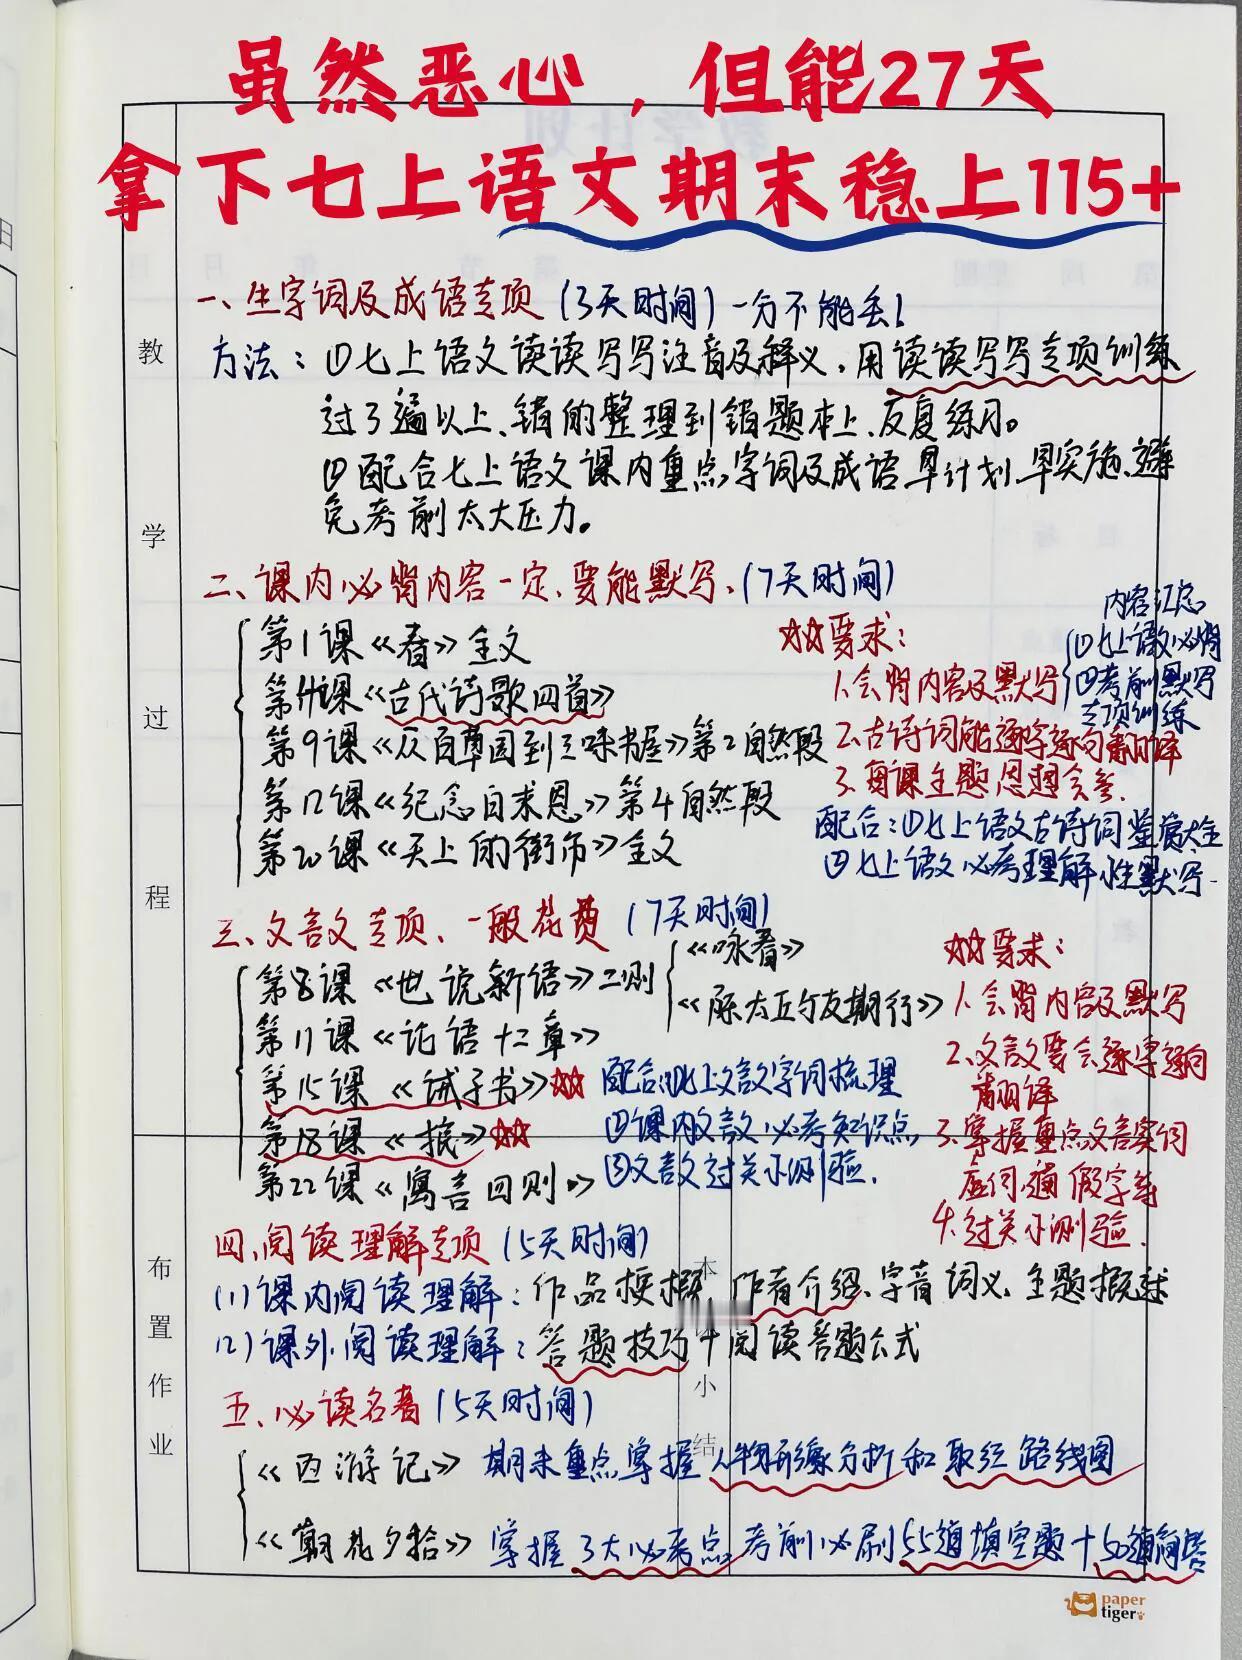 虽然恶心，但能27天
拿下七上语文期末稳上115+
一、生字词及成语专项（3天时间）一分不能丢！
方法：①七上语文读读写写注音及释义，用读读写写专项训练
过3遍以上、错的整理到错题本上、反复练习。
②配合七上语文课内重点字词及成语早计划早实施、避
免考前太大压力。
二、课内必背内容一定、要能默写、（7天时间）
第1课《春》全文
第4课《古代诗歌四首》
第9课《从百草园到三味书屋》第2自然段
第12课《纪念白求恩》第4自然段
第20课《天上的街市》全文
☆☆要求：
1、会背内容及默写
内容汇总
①七上语文必背
②考前默写
专项训练
2、古诗词能逐字逐句翻译
3、每课主题思想会考、
配合：①七上语文古诗词鉴赏大全
②七上语文必考理解性默写、
三、文言文专项、一般花费（7天时间）
第8课《世说新语》二则
《咏春》
《陈太丘与友期行》
第11课《论语十二章》
第15课《诫子书》☆☆
第18课《狼》☆☆
第22课《寓言四则》
配合：①七上文言文字词梳理
②课内文言文必考知识点
③文言文过关小测验、
☆☆要求：
1、会背内容及默写
2、文言文要会逐字逐句
翻译
3、掌握重点文言实词
虚词、通假字等
4、过关小测验、
四、阅读理解专项（5天时间）
（1）课内阅读理解：作品梗概、作者介绍、字音词义、主题概述
（2）课外阅读理解：答题技巧+阅读答题公式
五、必读名著（5天时间）
《西游记》期末重点掌握人物形象分析和取经路线图
《朝花夕拾》掌握3大必考点、考前必刷55道填空题+50道简答
教
学
过
程
布
置
作
业
本
小
结
paper
tiger